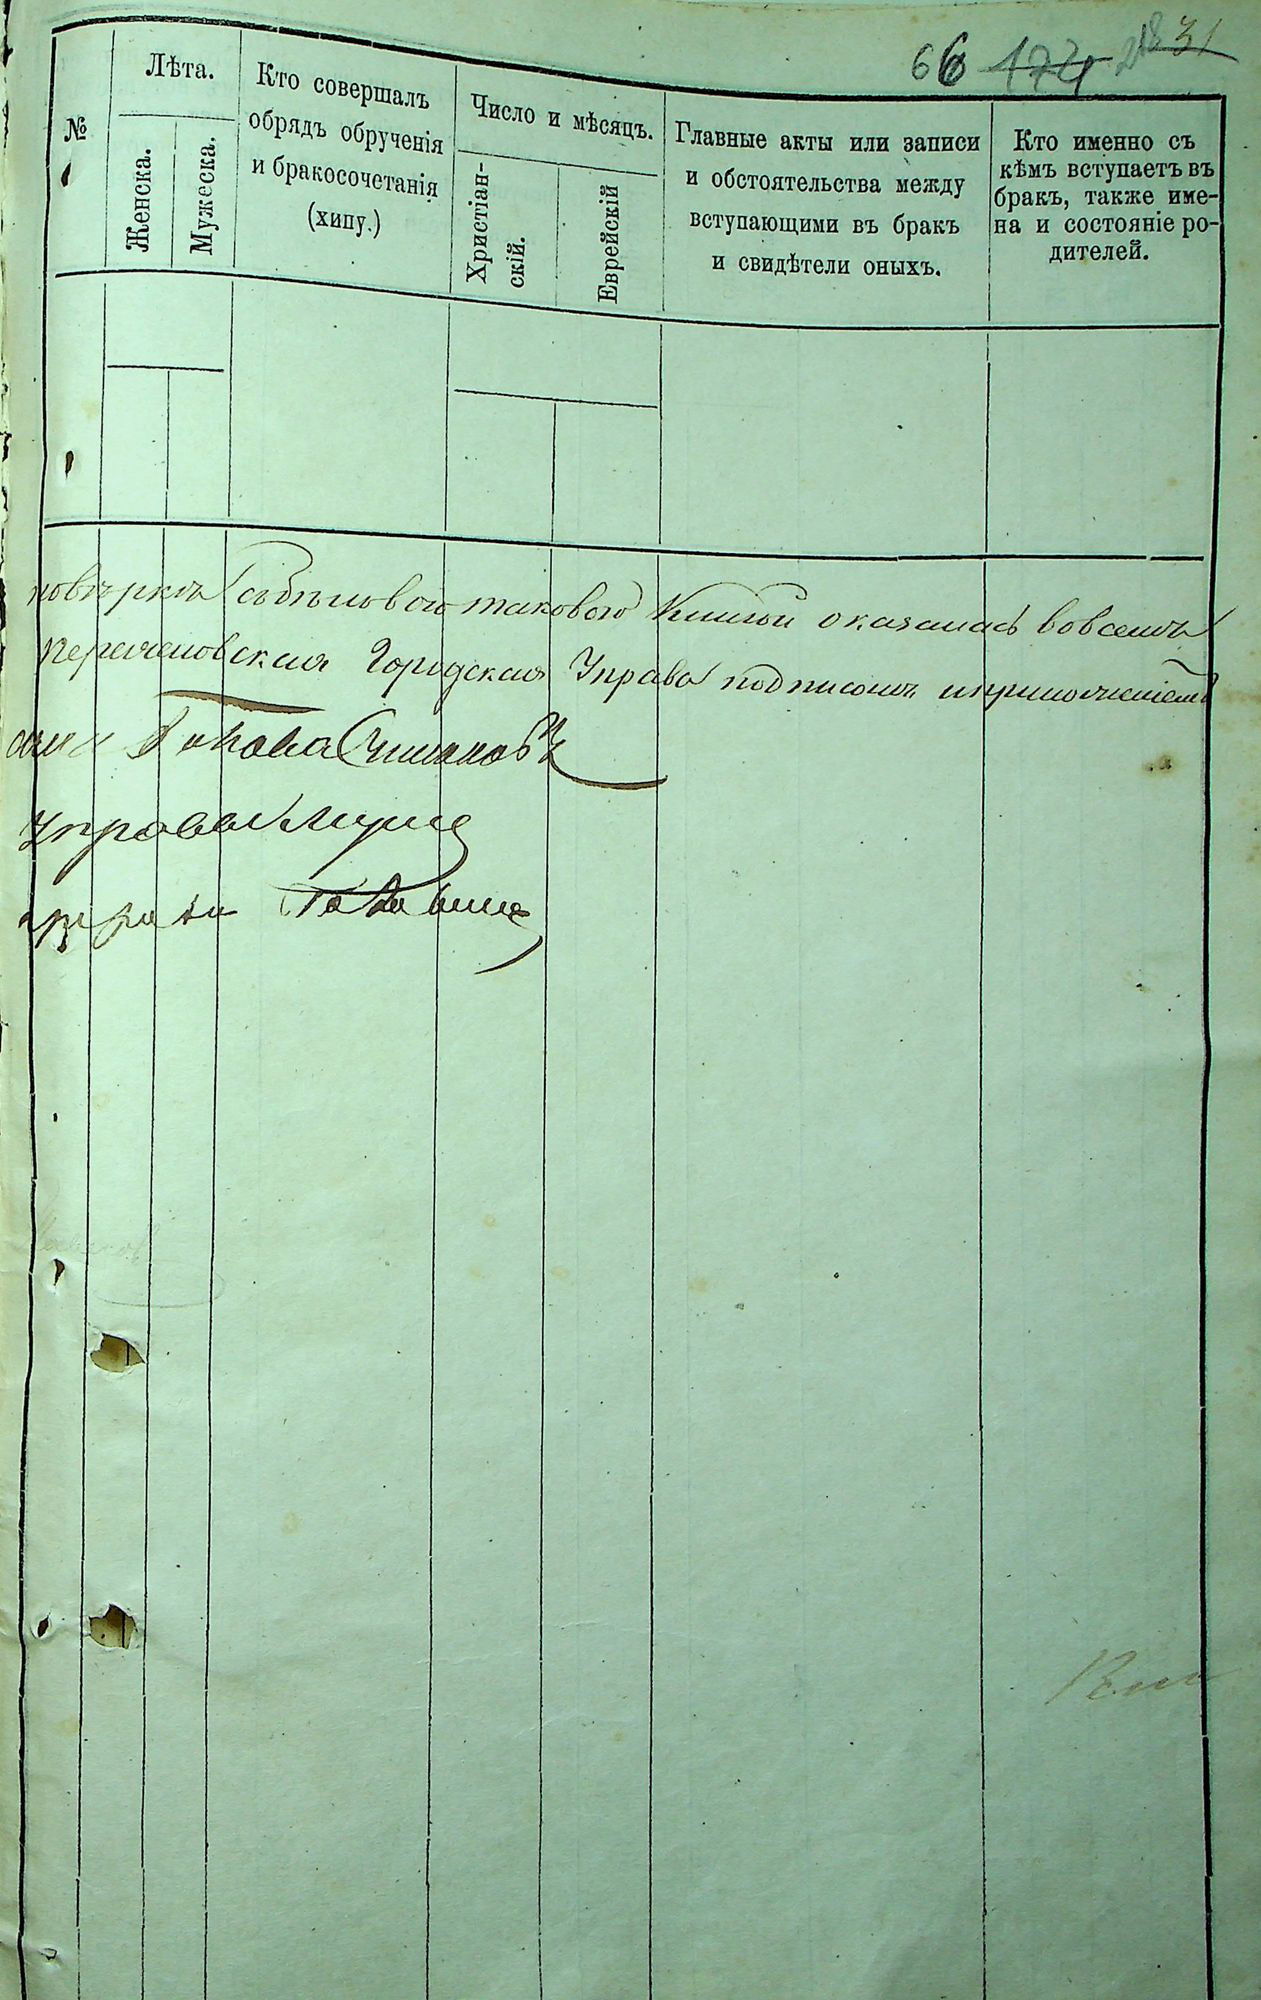 66 174 2183/
№
Лѣта.
Женска.
Мужеска.
Кто совершалъ
обрядъ обрученія
и бракосочетанія
(хипу.)
Число и мѣсяцъ.
Христіан-
скій.
Еврейскій
Главные акты или записи
и обстоятельства между
вступающими въ бракъ
и свидѣтели оныхъ.
Кто именно съ
кѣмъ вступаетъ въ
бракъ, также име-
на и состояніе ро-
дителей.
повѣркѣ съ бѣловою таковою Книгой оказалась вовсемъ
Городская Управа подписомъ и приложеніемъ
Голова
Управы